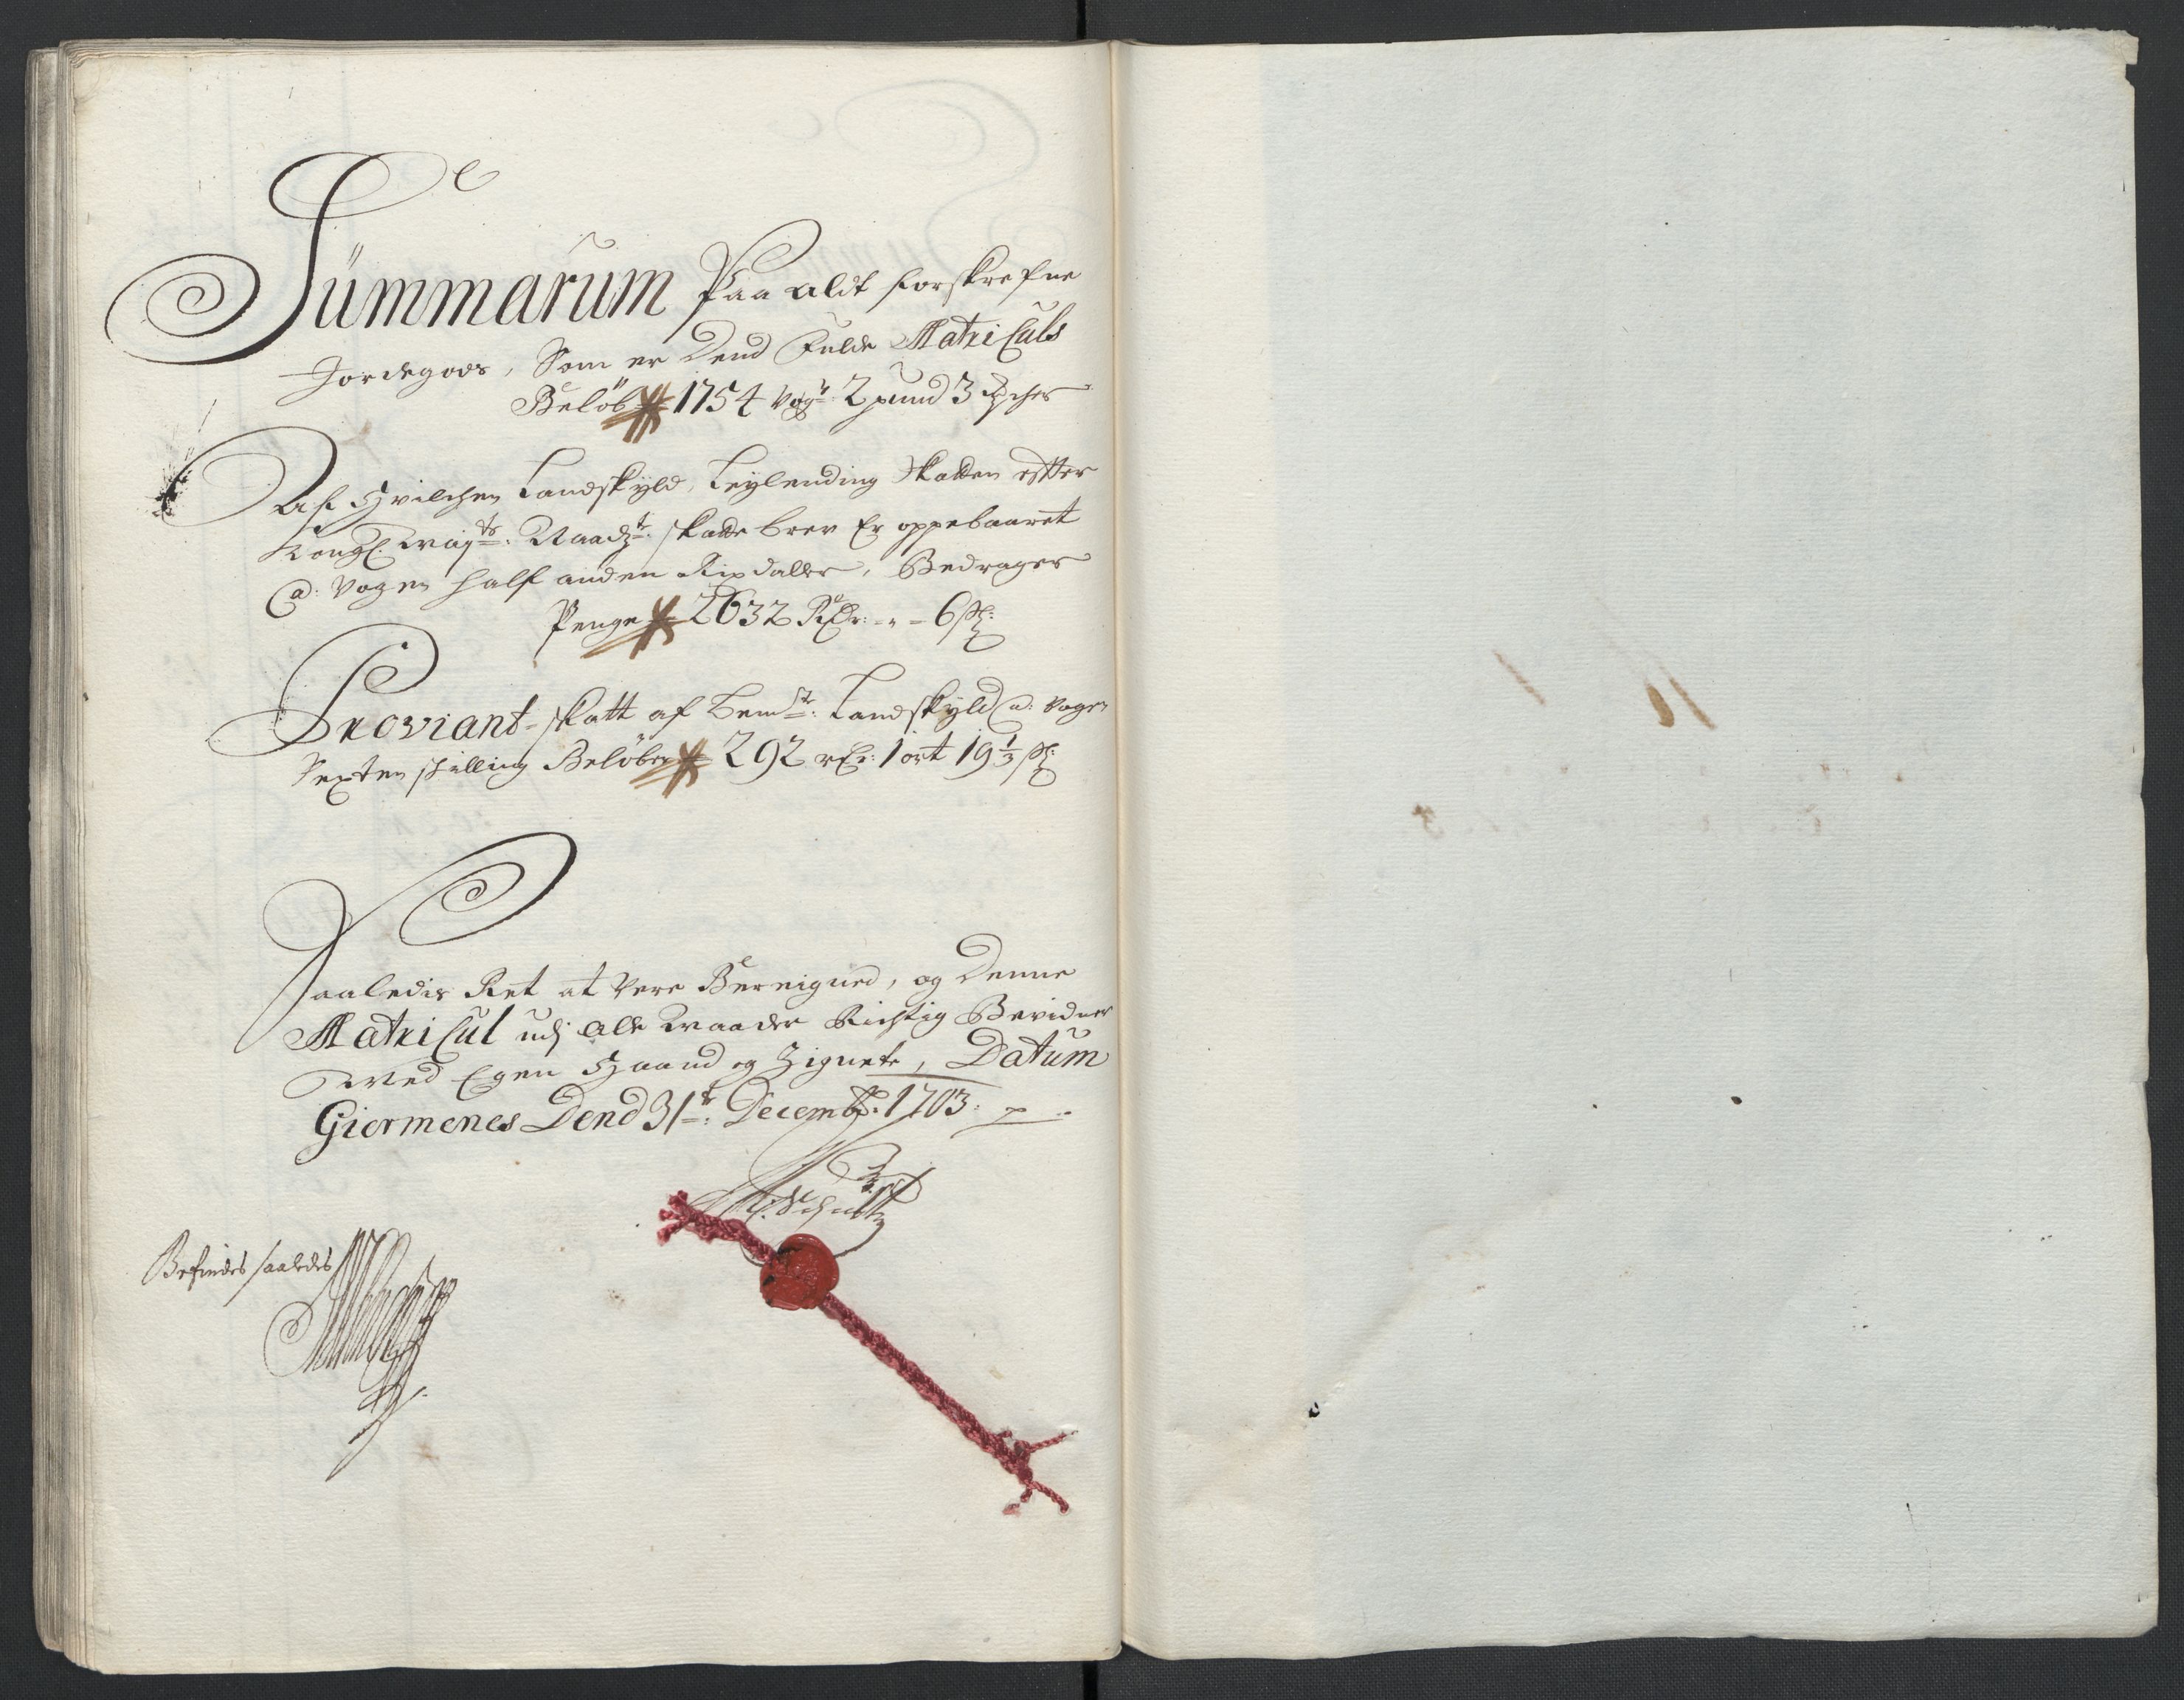 Summarum Paa aldt forskrefne
Jordegods, Som er Dend Fulde Matriculs
Beløb 1754 Vog̃r 2 pund 3
Af Hvilchen Landskyld, Leylending Skatten efter
Kongl. Mayts: Naadst: skatte brev Er oppebaaret
a: Vogen half anden Rixdaller, Bedrager
Penge 2632 Rdr: - 6 s:
Proviant-skatt af bemte: Landskyld a: Vogen
Sexten skilling Beløber 292 rdr: 1 ort 19 1/3 s:
Saaledis Ret at Vere Bereigned, og Denne
Matricul udj alle Maader Richtig Bevidner
Med Egen Haand og Zignete, Datum
Giermenes Dend 31te: Decembr: 1703:
Schultz
Befindes saaledes